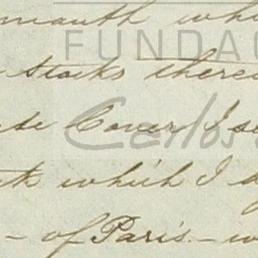 mouth whi
FUNDAC
Stocks there
Cover I se
Carlos
which I d
- of Paris - w